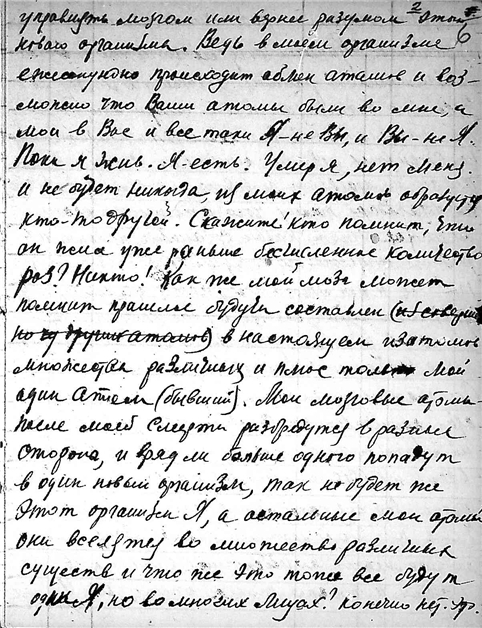 управлять мозгом или вернее разумом 2 этого 6
нового организма. Ведь в моем организме
ежесекундно происходит обмен атомов и воз-
можно что Ваши атомы были во мне, а
мои в Вас и все таки Я-не Вы, и Вы-не Я.
Пока я жив. Я-есть. Умер я, нет меня.
и не будет никогда, из моих атомов образуется
кто-то другой. Скажите! кто помнит, что
он жил уже раньше бесчисленное количество
раз? Никто! Как же мой мозг может
помнит прошлое будучи составлен (
но из других атомов) в настоящем из атомов
множества различных и плюс только мой
один Атом (бывший). Мои мозговые атомы
после моей смерти разбредутся в разные
стороны, и вряд ли больше одного попадут
в один новый организм, так не будет же
этот организм Я, а остальные мои атомы
они вселятся во множество различных
существ и что же это тоже все будут
одни Я, но во многих лицах? конечно нет.